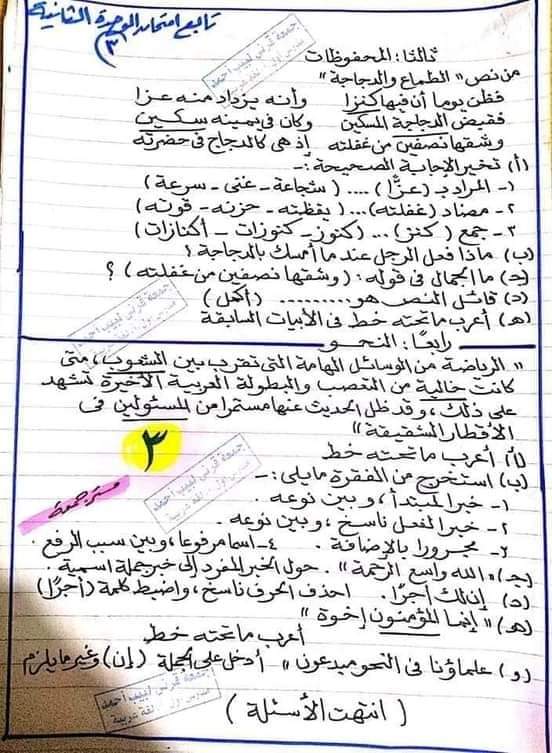 تابع امتحان الوحدة الثانية
(٣)
ثالثا: المحفوظات
من نص "الطماع والدجاجة"
فظن يوما أن فيها كنزا وأنه يزداد منه عزا
فقبض الدجاجة المسكين وكان في يمينه سكين
وشقها نصفين من غفلته إذ هي كالدجاج في حضرته
(أ) تخير الإجابة الصحيحة:-
١- المراد بـ (عزًّا) .... (شجاعة - غنى - سرعة)
٢- مضاد (غفلته)...( يقظته - حزنه - قوته)
٣- جمع (كنز)... (كنوز - كنوزات - أكنازات)
(ب) ماذا فعل الرجل عندما أمسك بالدجاجة؟
(ج) ما الجمال في قوله: (وشقها نصفين من غفلته)؟
(د) قائل النص هو.......... (أكمل)
(هـ) أعرب ما تحته خط في الأبيات السابقة
رابعًا: النحو
"الرياضة من الوسائل الهامة التي تقرب بين الشعوب، متى
كانت خالية من التعصب والبطولة العربية الأخيرة تشهد
على ذلك، وقد ظل الحديث عنها مستمرا من المسئولين في
الأقطار الشقيقة"
(أ) أعرب ما تحته خط
٣
(ب) استخرج من الفقرة ما يلي:-
١- خبرا لمبتدأ، وبين نوعه.
٢- خبرا لفعل ناسخ، وبين نوعه.
٣- مجرورا بالإضافة. ٤- اسما مرفوعا، وبين سبب الرفع.
مستر جمعة
(جـ) "الله واسع الرحمة". حول الخبر المفرد إلى خبر جملة اسمية.
(د) إن لك أجرًا. احذف الحرف ناسخ، واضبط كلمة (أجرًا)
(هـ) "إنما المؤمنون إخوة"
أعرب ما تحته خط
(و) علماؤنا في النحو مبدعون" أدخل على الجملة (إن) وغير ما يلزم
(انتهت الأسئلة)
جمعة قرني لبيب أحمد
جمعة قرني لبيب أحمد
جمعة قرني لبيب أحمد
جمعة قرني لبيب أحمد